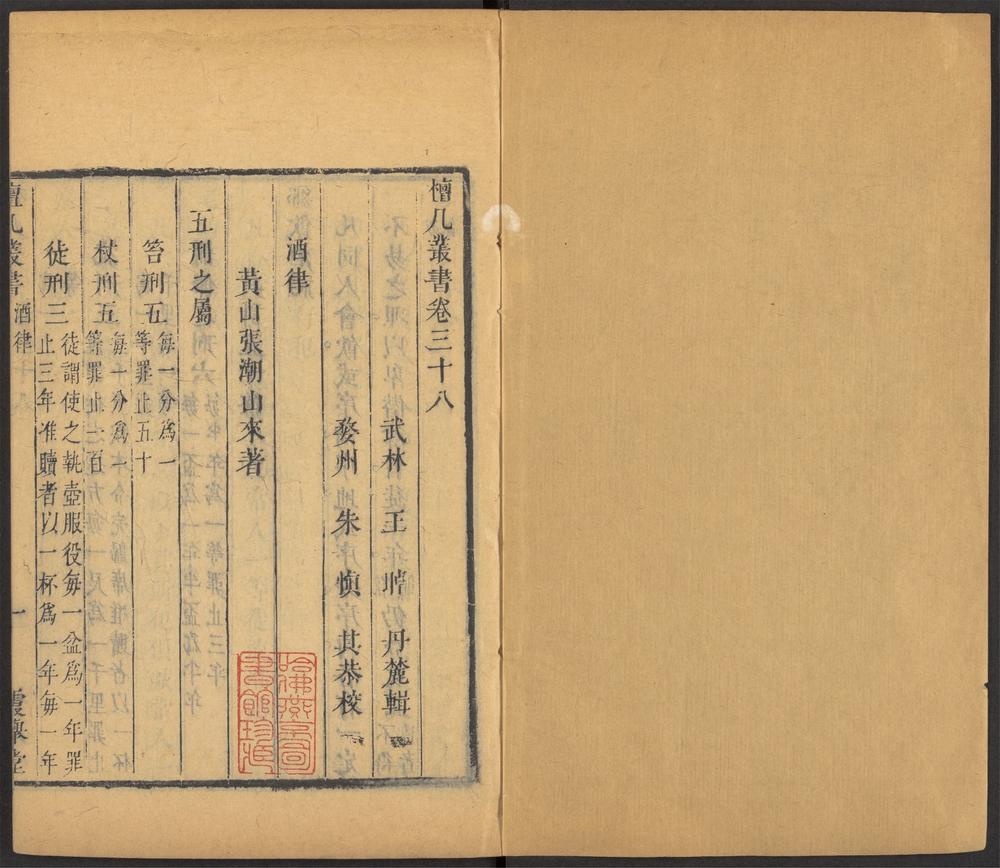 檀几叢書卷三十八
武林 王 晫 丹麓輯
婺州 朱 慎 其恭校
酒律
黃山張潮山來著
五刑之屬
笞刑五
每一分為一
等罪止五十
杖刑五
每十分為一
等罪止一百
徒刑三
徒謂使之執壺服役每一盆為一年罪
止三年准贖者以一杯為一年每一年
檀几叢書 酒律 一 霞舉堂
哈佛燕京圖
書館珍藏